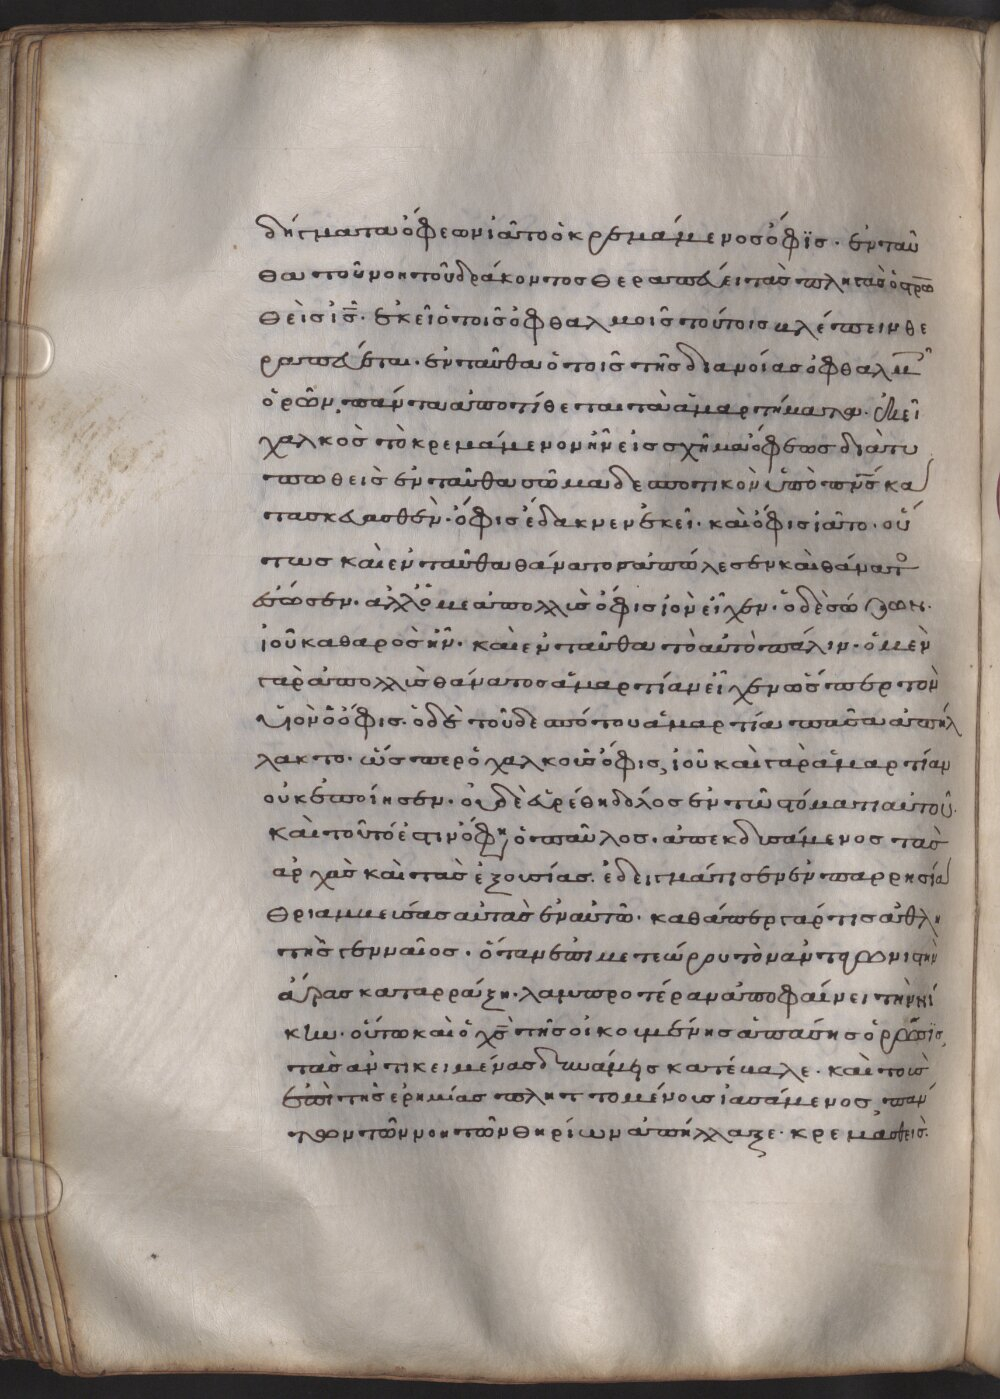 δήγματα ὄφεων ἰᾶτο ὁ κρεμάμενος ὄφϊς· ἐνταῦ
θα τοῦ νοητοῦ δράκοντος θεραπεύει τὰς πληγὰς ὁ σ̅ρ̅ω̅
θεὶς ι̅ς̅· ἐκεῖ ὁ τοῖς ὀφθαλμοῖς τούτοις βλέπειν θε
ραπεύεται· ἐνταῦθα ὁ τοῖς τῆς διανοίας ὀφθαλμ
ὁρῶν, πάντα ἀποτίθεται τὰ ἁμαρτήματα· ἐκεῖ
χαλκὸς τὸ κρεμάμενον ἦν εἰς σχῆμα ὄφεως διατυ
πωθεὶς ἐνταῦθα σῶμα δεσποτικὸν ὑπὸ π̅ν̅ς̅ κα
τασκευασθέν· ὄφις ἔδακνεν ἐκεῖ· καὶ ὄφις ἰᾶτο· οὕ
τως καὶ ἐνταῦθα θάνατος ἀπώλεσεν καὶ θάνατ
ἔσωσεν· ἀλλ' ὁ με ἀπολλὺς ὄφις ἰὸν εἶχεν· ὁ δὲ σώζων
ἰοῦ καθαρὸς ἦν· καὶ ἐνταῦθα τὸ αὐτὸ πάλιν· ὁ μὲν
γὰρ ἀπολλὺς θάνατος ἁμαρτίαν εἶχεν ὥσπερ τὸν
ἰὸν ὁ ὄφις· ὁ δὲ τοῦ δεσπότου ἁμαρτία πᾶσα ἀπήλ
λακτο· ὥσπερ ὁ χαλκοῦς ὄφις, ἰοῦ καὶ γὰρ ἁμαρτίαν
οὐκ ἐποίησεν· οὐδὲ εὑρέθη δόλος ἐν τῷ στόματι αὐτοῦ·
καὶ τοῦτό ἐστιν ὅ φη ὁ παῦλος· ἀπεκδυσάμενος τὰς
ἀρχὰς καὶ τὰς ἐξουσίας· ἐδειγμάτισεν ἐν παρρησία
θριαμβεύσας αὐτὰς ἐν αὐτῷ· καθάπερ γάρ τις ἀθλη
τὴς γενναῖος· ὅταν ἐπὶ μετεώρου τὸν ἀνταγωνιστὴν
ἄρας καταρράξη· λαμπροτέραν ἀποφαίνει τὴν νί
κην· οὕτω καὶ ὁ χ̅ς̅ τῆς οἰκουμένης ἁπάσης ὁρώσϊς,
τὰς ἀντικειμένας δυνάμεις κατέβαλε· καὶ τοὺς
ἐπὶ τῆς ἐρημίας πληττομένους ἰασάμενος, πάν
των τῶν νοητῶν θηρίων ἀπήλλαξε· κρεμασθεὶς·